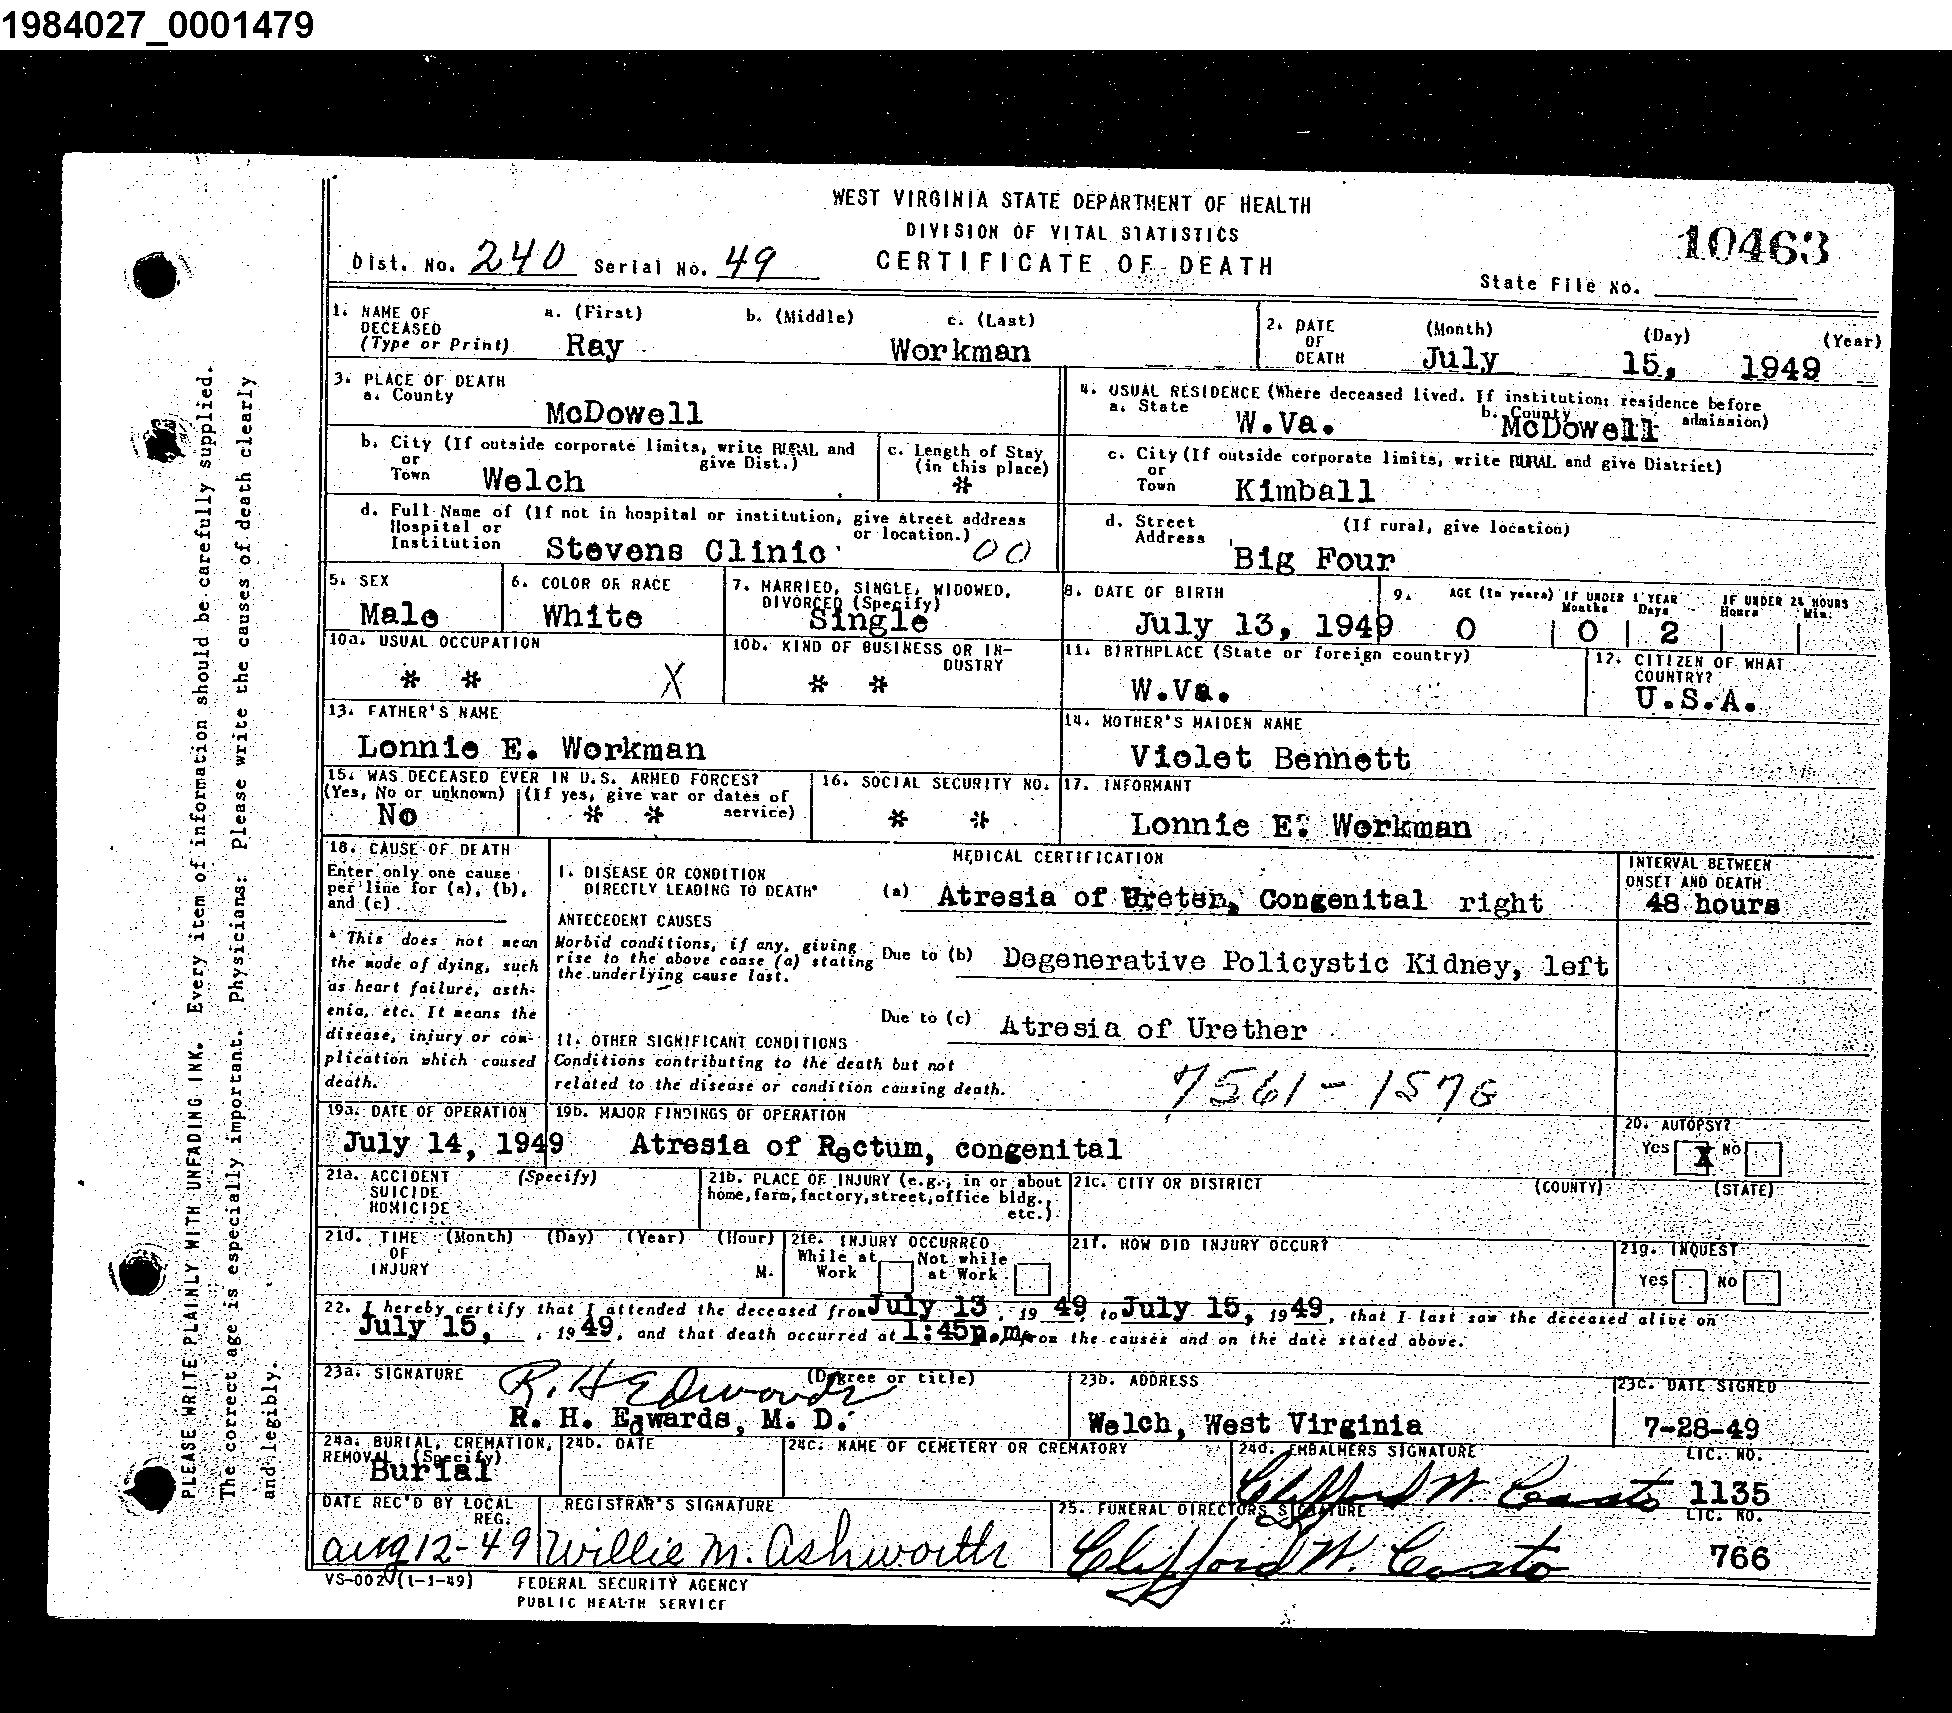 1984027_0001479
WEST VIRGINIA STATE DEPARTMENT OF HEALTH
DIVISION OF VITAL STATISTICS
CERTIFICATE OF DEATH
Dist. No. 240 Serial No. 49
10463
State File No.
1. NAME OF DECEASED (Type or Print) a. (First) b. (Middle) c. (Last)
Ray Workman
2. DATE OF DEATH (Month) (Day) (Year)
July 15, 1949
3. PLACE OF DEATH
a. County
McDowell
4. USUAL RESIDENCE (Where deceased lived. If institution: residence before admission)
a. State W.Va. b. County McDowell
b. City (If outside corporate limits, write RURAL and give Dist.)
or Town Welch
c. Length of Stay (in this place)
*
c. City (If outside corporate limits, write RURAL and give District)
or Town Kimball
d. Full Name of (If not in hospital or institution, give street address or location.)
Hospital or Institution Stevens Clinic 00
d. Street Address (If rural, give location)
Big Four
5. SEX
Male
6. COLOR OR RACE
White
7. MARRIED, SINGLE, WIDOWED, DIVORCED (Specify)
Single
8. DATE OF BIRTH
July 13, 1949
9. AGE (In years) IF UNDER 1 YEAR Months Days IF UNDER 24 HOURS Hours Min.
0 0 2
10a. USUAL OCCUPATION
* * X
10b. KIND OF BUSINESS OR INDUSTRY
* *
11. BIRTHPLACE (State or foreign country)
W.Va.
12. CITIZEN OF WHAT COUNTRY?
U.S.A.
13. FATHER'S NAME
Lonnie E. Workman
14. MOTHER'S MAIDEN NAME
Violet Bennett
15. WAS DECEASED EVER IN U.S. ARMED FORCES?
(Yes, No or unknown) (If yes, give war or dates of service)
No * *
16. SOCIAL SECURITY NO.
* *
17. INFORMANT
Lonnie E. Workman
18. CAUSE OF DEATH
Enter only one cause per line for (a), (b), and (c)
* This does not mean the mode of dying, such as heart failure, asthenia, etc. It means the disease, injury or complication which caused death.
MEDICAL CERTIFICATION
INTERVAL BETWEEN ONSET AND DEATH
I. DISEASE OR CONDITION DIRECTLY LEADING TO DEATH*
(a) Atresia of Ureter, Congenital right 48 hours
ANTECEDENT CAUSES
Morbid conditions, if any, giving rise to the above cause (a) stating the underlying cause last.
Due to (b) Degenerative Policystic Kidney, left
Due to (c) Atresia of Urether
11. OTHER SIGNIFICANT CONDITIONS
Conditions contributing to the death but not related to the disease or condition causing death.
7561-1576
19a. DATE OF OPERATION
July 14, 1949
19b. MAJOR FINDINGS OF OPERATION
Atresia of Rectum, congenital
20. AUTOPSY?
Yes X No
21a. ACCIDENT SUICIDE HOMICIDE (Specify)
21b. PLACE OF INJURY (e.g., in or about home, farm, factory, street, office bldg., etc.)
21c. CITY OR DISTRICT (COUNTY) (STATE)
21d. TIME OF INJURY (Month) (Day) (Year) (Hour) M.
21e. INJURY OCCURRED
While at Work Not while at Work
21f. HOW DID INJURY OCCUR?
21g. INQUEST
Yes No
22. I hereby certify that I attended the deceased from July 13, 1949, to July 15, 1949, that I last saw the deceased alive on
July 15, 1949, and that death occurred at 1:45p.m. from the causes and on the date stated above.
23a. SIGNATURE (Degree or title)
R. H Edwards
R. H. Edwards, M. D.
23b. ADDRESS
Welch, West Virginia
23c. DATE SIGNED
7-28-49
24a. BURIAL, CREMATION, REMOVAL (Specify)
Burial
24b. DATE
24c. NAME OF CEMETERY OR CREMATORY
24d. EMBALMERS SIGNATURE LIC. NO.
Clifford W Casto 1135
DATE REC'D BY LOCAL REG.
Aug 12-49
REGISTRAR'S SIGNATURE
Willie M. Ashworth
25. FUNERAL DIRECTORS SIGNATURE LIC. NO.
Clifford W. Casto 766
VS-002 (1-1-49)
FEDERAL SECURITY AGENCY
PUBLIC HEALTH SERVICE
PLEASE WRITE PLAINLY WITH UNFADING INK. Every item of information should be carefully supplied.
The correct age is especially important. Physicians: Please write the causes of death clearly
and legibly.